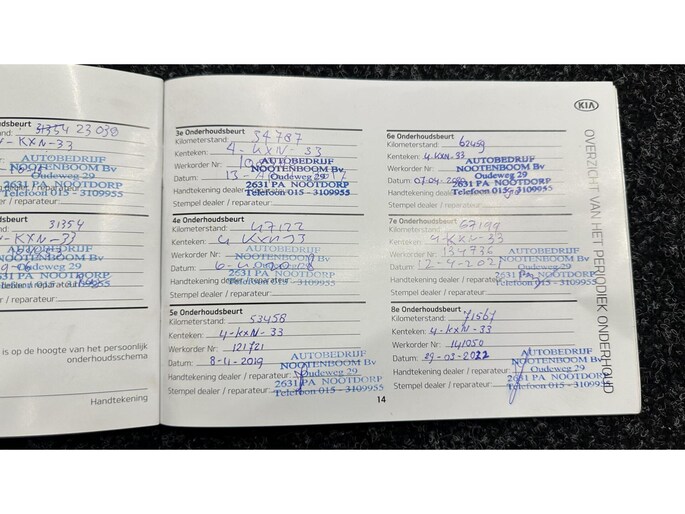 dsbeurt
31354 23038
-KXN-33
AUTOBEDRIJF
NOOTENBOOM Bv
Oudeweg 29
2631 PA NOOTDORP
Telefoon 015 - 3109955
/ reparateur:
dsbeurt
31354
-KXN-33
AUTOBEDRIJF
NOOTENBOOM Bv
Oudeweg 29
2631 PA NOOTDORP
/ reparateur:
is op de hoogte van het persoonlijk
onderhoudsschema
Handtekening
3e Onderhoudsbeurt
Kilometerstand:
Kenteken: 4-KXN-33
Werkorder Nr:
Datum: 13-
Handtekening dealer
Stempel dealer / reparateur:
AUTOBEDRIJF
NOOTENBOOM Bv
Oudeweg 29
2631 PA NOOTDORP
Telefoon 015 - 3109955
4e Onderhoudsbeurt
Kilometerstand: 47122
Kenteken: 4 KXN-33
Werkorder Nr:
Datum: 6-4-2018
Handtekening dealer / reparateur:
Stempel dealer / reparateur:
AUTOBEDRIJF
NOOTENBOOM Bv
Oudeweg 29
2631 PA NOOTDORP
Telefoon 015 - 3109955
5e Onderhoudsbeurt
Kilometerstand: 53458
Kenteken: 4-KXN-33
Werkorder Nr: 121721
Datum: 8-4-2019
Handtekening dealer / reparateur:
Stempel dealer / reparateur:
AUTOBEDRIJF
NOOTENBOOM Bv
Oudeweg 29
2631 PA NOOTDORP
Telefoon 015 - 3109955
14
6e Onderhoudsbeurt
Kilometerstand: 62459
Kenteken: 4-KXN-33
Werkorder Nr:
Datum: 07-04-20
Handtekening
Stempel dealer / reparateur:
AUTOBEDRIJF
NOOTENBOOM Bv
Oudeweg 29
2631 PA NOOTDORP
Telefoon 015 - 3109955
7e Onderhoudsbeurt
Kilometerstand: 67199
Kenteken: 4-KXN-33
Werkorder Nr: 134736
Datum: 12-4-202
Handtekening dealer / reparateur:
Stempel dealer / reparateur:
AUTOBEDRIJF
NOOTENBOOM Bv
Oudeweg 29
2631 PA NOOTDORP
Telefoon 015 - 3109955
8e Onderhoudsbeurt
Kilometerstand: 71567
Kenteken: 4-KXN-33
Werkorder Nr: 141050
Datum: 29-03-2022
Handtekening dealer / reparateur:
Stempel dealer / reparateur:
AUTOBEDRIJF
NOOTENBOOM Bv
Oudeweg 29
2631 PA NOOTDORP
Telefoon 015 - 3109955
KIA
OVERZICHT VAN HET PERIODIEK ONDERHOUD